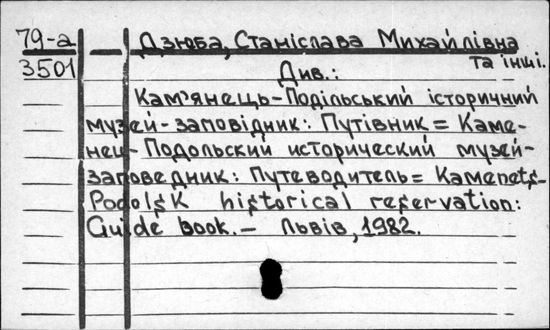 79-а — Дзюба, Станіслава Михайлівна
3501 та інші.
Див.:
Кам'янець-Подільський історичний
музей-заповідник: Путівник = Каме-
нец-Подольский исторический музей-
заповедник: Путеводитель = Kamenets-
Podolsk historical reservation:
Guide book. — Львів, 1982.